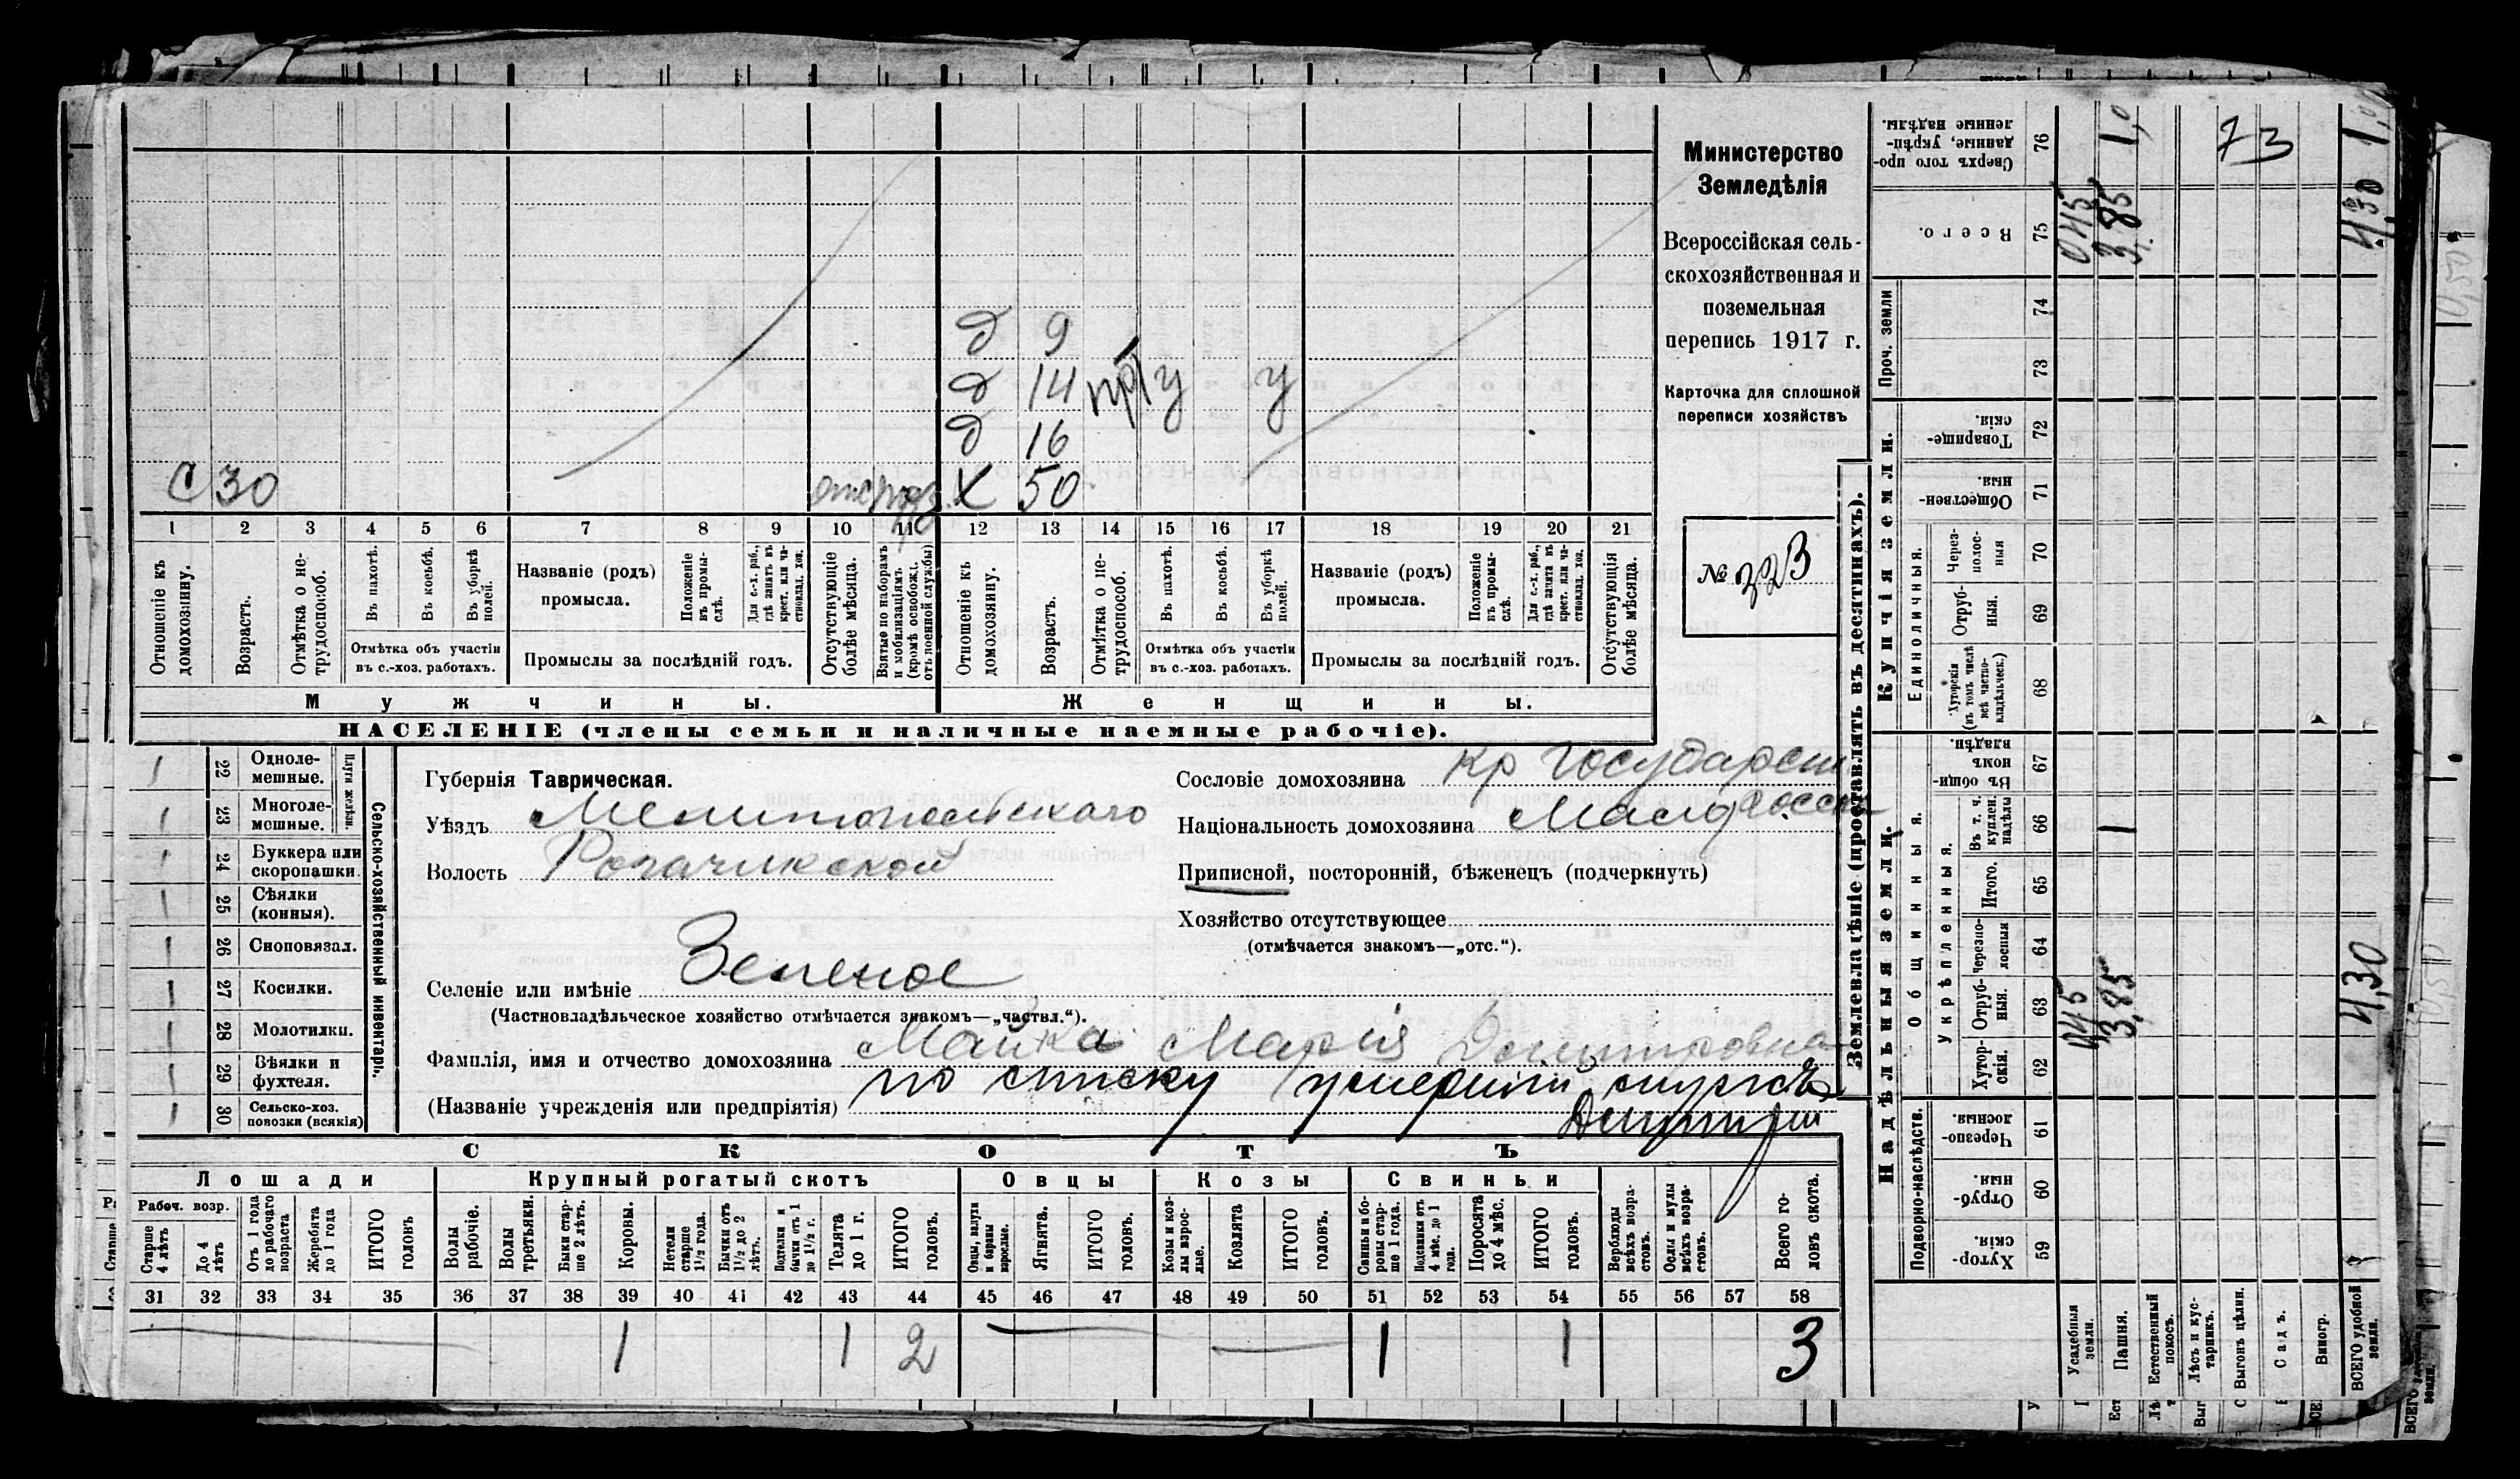 Министерство
Земледѣлія
Всероссійская сель-
скохозяйственная и
поземельная
перепись 1917 г.
Карточка для сплошной
переписи хозяйствъ
№ 323
д 9
д 14 у у
д 16
С 30 отс Х 50
1 2 3 4 5 6 7 8 9 10 11 12 13 14 15 16 17 18 19 20 21
Отношеніе къ домохозяину.
Возрастъ.
Отмѣтка о не-трудоспособ.
Въ пахотѣ.
Въ косьбѣ.
Въ уборкѣ полей.
Отмѣтка объ участіи въ с.-хоз. работахъ.
Названіе (родъ) промысла.
Положеніе въ промы-слѣ.
Для с.-х. раб., гдѣ занятъ въ крест. или ча-стновлад. хоз.
Промыслы за послѣдній годъ.
Отсутствующіе болѣе мѣсяца.
Взятые по наборамъ и мобилизаціямъ (кромѣ освобожд. отъ военной службы)
Отношеніе къ домохозяину.
Возрастъ.
Отмѣтка о не-трудоспособ.
Въ пахотѣ.
Въ косьбѣ.
Въ уборкѣ полей.
Отмѣтка объ участіи въ с.-хоз. работахъ.
Названіе (родъ) промысла.
Положеніе въ промы-слѣ.
Для с.-х. раб., гдѣ занята въ крест. или ча-стновлад. хоз.
Промыслы за послѣдній годъ.
Отсутствующія болѣе мѣсяца.
Мужчины.
Женщины.
НАСЕЛЕНІЕ (члены семьи и наличные наемные рабочіе).
Сельско-хозяйственный инвентарь.
Плуги желѣзн.
22 Одноле-мешные.
23 Многоле-мешные.
24 Буккера или скоропашки.
25 Сѣялки (конныя).
26 Сноповязал.
27 Косилки.
28 Молотилки.
29 Вѣялки и фухтеля.
30 Сельско-хоз. повозки (всякія)
Губернія Таврическая.
Уѣздъ Мелитопольскаго
Волость Рогачикской
Селеніе или имѣніе Зеленое
(Частновладѣльческое хозяйство отмѣчается знакомъ—„частвл.“).
Сословіе домохозяина кр Государств
Національность домохозяина Малоросс
Приписной, посторонній, бѣженецъ (подчеркнуть)
Хозяйство отсутствующее
(отмѣчается знакомъ—„отс.“).
Фамилія, имя и отчество домохозяина Майка Марія Димитровна
по списку умершій супругъ
(Названіе учрежденія или предпріятія) Дмитрій
СКОТЪ
Лошади
Крупный рогатый скотъ
Овцы
Козы
Свиньи
Рабоч. возр.
Старше 4 лѣтъ
До 4 лѣтъ
Отъ 1 года до рабочаго возраста
Жеребята до 1 года
ИТОГО головъ
Волы рабочіе.
Волы третьяки.
Быки стар-ше 2 лѣтъ.
Коровы.
Нетели старше 1½ года.
Бычки отъ 1½ до 2 лѣтъ.
Подтелки и бычки отъ 1 до 1½ г.
Телята до 1 г.
ИТОГО головъ.
Овцы, валухи и бараны взрослые.
Ягнята.
ИТОГО головъ.
Козы и коз-лы взрос-лые.
Козлята
ИТОГО головъ.
Свиньи и бо-ровы стар-ше 1 года.
Подсвинки отъ 4 мѣс. до 1 года.
Поросята до 4 мѣс.
ИТОГО головъ.
Верблюды всѣхъ возра-стовъ.
Ослы и мулы всѣхъ возра-стовъ.
Всего го-ловъ скота.
31 32 33 34 35 36 37 38 39 40 41 42 43 44 45 46 47 48 49 50 51 52 53 54 55 56 57 58
1 1 2 1 1 3
Землевладѣніе (проставлять въ десятинахъ).
Надѣльныя земли.
Купчія земли.
Проч. земли
Подворно-наслѣдств.
Общинныя.
Укрѣпленныя.
Единоличныя.
Сверхъ того про-данные, укрѣп-ленные надѣлы. 76 1,0
Всего. 75 045 3,85 4,30
74
73
Товарище-скія. 72
Обществен-ныя. 71
Через-полос-ныя 70
Отруб-ныя. 69
Хуторскія (въ томъ числѣ всѣ частно-владѣльческ.) 68
Въ общи-номъ владѣн. 67
Въ т. ч. куплен. надѣлы 66
Итого. 65
Черезпо-лосныя 64
Отруб-ныя. 63 045 3,85 4,30
Хутор-скія. 62
Черезпо-лосныя. 61
Отруб-ныя. 60
Хутор-скія. 59
73
Усадебныя земли.
Пашня.
Естественный покосъ.
Лѣсъ и кус-тарникъ.
Выгонъ цѣлин.
Садъ.
Виногр.
ВСЕГО удобной земли.